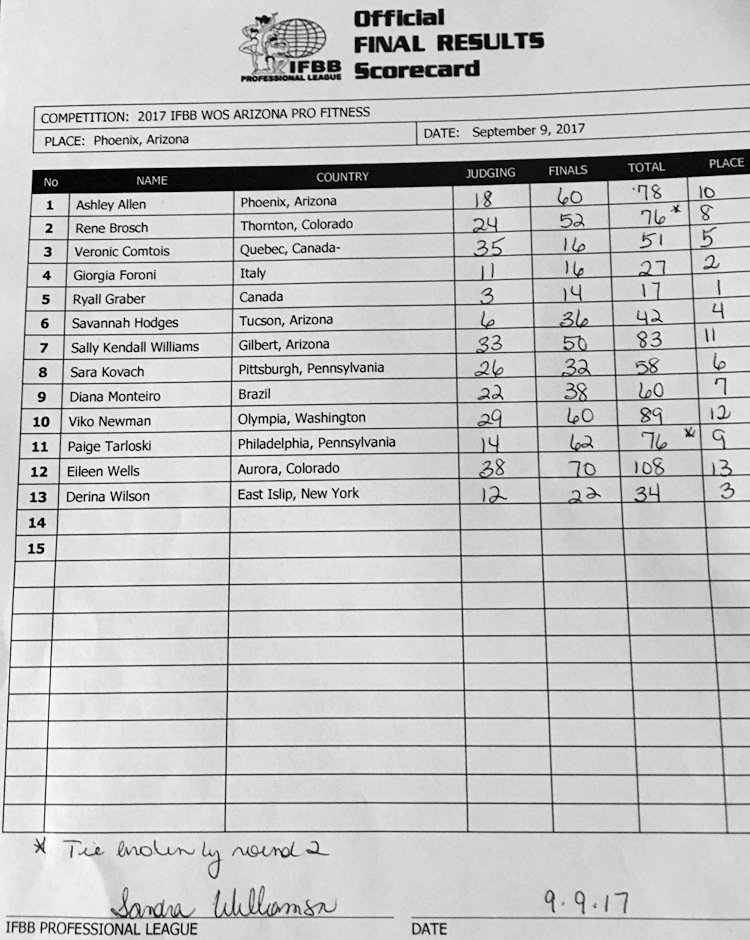 Official
FINAL RESULTS
Scorecard
IFBB
PROFESSIONAL LEAGUE
COMPETITION: 2017 IFBB WOS ARIZONA PRO FITNESS
PLACE: Phoenix, Arizona DATE: September 9, 2017
No NAME COUNTRY JUDGING FINALS TOTAL PLACE
1 Ashley Allen Phoenix, Arizona 18 60 78 10
2 Rene Brosch Thornton, Colorado 24 52 76* 8
3 Veronic Comtois Quebec, Canada- 35 16 51 5
4 Giorgia Foroni Italy 11 16 27 2
5 Ryall Graber Canada 3 14 17 1
6 Savannah Hodges Tucson, Arizona 6 36 42 4
7 Sally Kendall Williams Gilbert, Arizona 33 50 83 11
8 Sara Kovach Pittsburgh, Pennsylvania 26 32 58 6
9 Diana Monteiro Brazil 22 38 60 7
10 Viko Newman Olympia, Washington 29 60 89 12
11 Paige Tarloski Philadelphia, Pennsylvania 14 62 76 * 9
12 Eileen Wells Aurora, Colorado 38 70 108 13
13 Derina Wilson East Islip, New York 12 22 34 3
14
15
* Tie broken by round 2
Sandra Williamson 9.9.17
IFBB PROFESSIONAL LEAGUE DATE